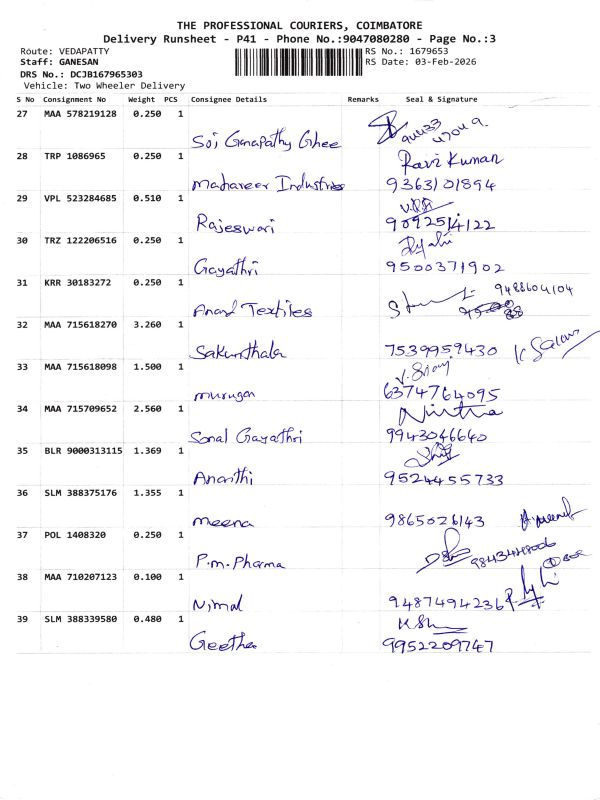 THE PROFESSIONAL COURIERS, COIMBATORE
Delivery Runsheet - P41 - Phone No.:9047080280 - Page No.:3
Route: VEDAPATTY RS No.: 1679653
Staff: GANESAN RS Date: 03-Feb-2026
DRS No.: DCJB167965303
Vehicle: Two Wheeler Delivery
S No Consignment No Weight PCS Consignee Details Remarks Seal & Signature
27 MAA 578219128 0.250 1
Sri Ganapathy Ghee
28 TRP 1086965 0.250 1 Ravi Kumar
Mahaveer Industries 9363101894
29 VPL 523284685 0.510 1
Rajeswari 9092514122
30 TRZ 122206516 0.250 1
Gayathri 9500371902
31 KRR 30183272 0.250 1 9488604104
Anand Textiles
32 MAA 715618270 3.260 1
Sakunthala 7539959430
33 MAA 715618098 1.500 1
murugan 6374764095
34 MAA 715709652 2.560 1
Sonal Gayathri 9943046640
35 BLR 9000313115 1.369 1
Ananthi 9524455733
36 SLM 388375176 1.355 1
meena 9865026143
37 POL 1408320 0.250 1
P.m.Pharma
38 MAA 710207123 0.100 1
Nimal 9487494236
39 SLM 388339580 0.480 1
Geetha 9952209747